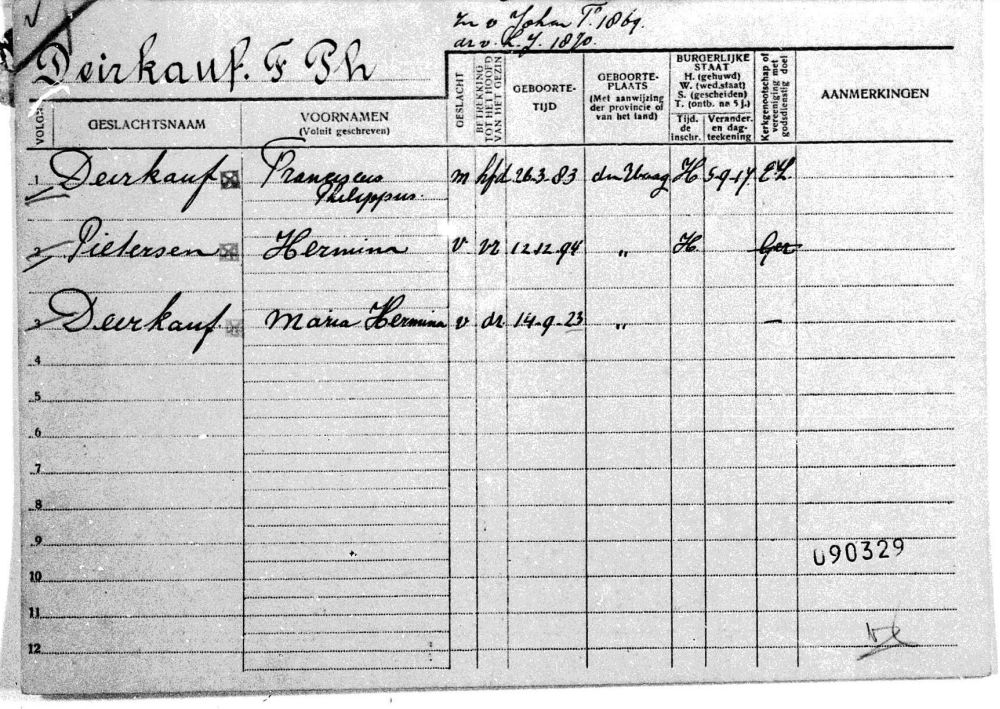 zn v Johan F. 1869.
dr v. L. J. 1870.
Deirkauf. F Ph
VOLGNO.
GESLACHTSNAAM
VOORNAMEN
(Voluit geschreven)
GESLACHT
BETREKKING
TOT HET HOOFD
VAN HET GEZIN
GEBOORTE-
TIJD
GEBOORTE-
PLAATS
(Met aanwijzing
der provincie of
van het land)
BURGERLIJKE
STAAT
H. (gehuwd)
W. (wed.staat)
S. (gescheiden)
T. (ontb. na 5 j.)
Tijd.
de
inschr.
Verander.
en dag-
teekening
Kerkgenootschap of
vereeniging met
godsdienstig doel
AANMERKINGEN
1 Deirkauf Franciscus Philippus. m hfd 26.3.83 den Haag H 5-9-17 E.L.
2 Pietersen Hermina v. vr 12.12.94 " H Ger
3 Deirkauf. Maria Hermina v dr 14-9-23 " —
4
5
6
7
8
9
090329
10
11
12